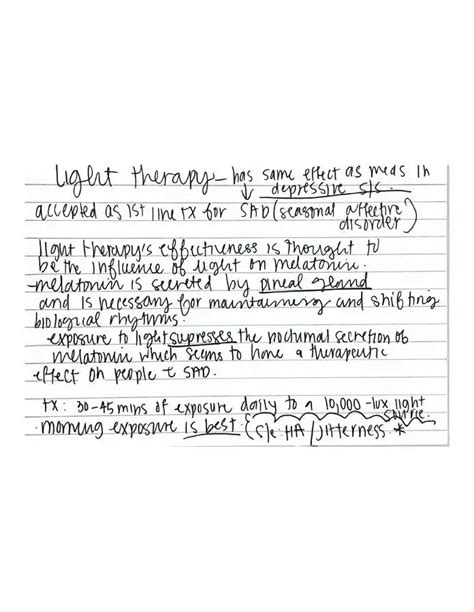 light therapy - has same effect as meds in
depressive s/s.
accepted as 1st line tx for SAD (seasonal affective
disorder)
light therapy's effectiveness is thought to
be the influence of light on melatonin.
-melatonin is secreted by pineal gland
and is necessary for maintaining and shifting
biological rhythms.
exposure to light supresses the nocturnal secretion of
melatonin which seems to have a therapeutic
effect on people c SAD.
tx: 30-45 mins of exposure daily to a 10,000-lux light
source.
·morning exposure is best. {s/e: HA/jitterness.*